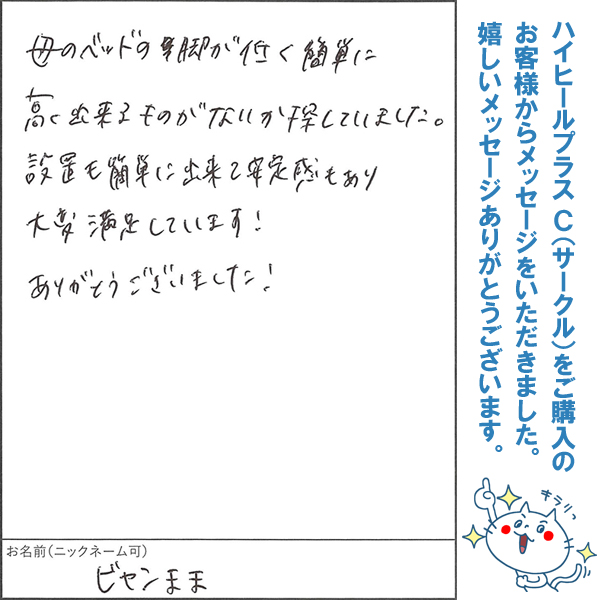 母のベッドの脚が低く簡単に
高く出来るものがないか探していました。
設置も簡単に出来て安定感もあり
大変満足しています!
ありがとうございました!
お名前(ニックネーム可)
ビヤンまま
ハイヒールプラスC(サークル)をご購入の
お客様からメッセージをいただきました。
嬉しいメッセージありがとうございます。
キラリっ